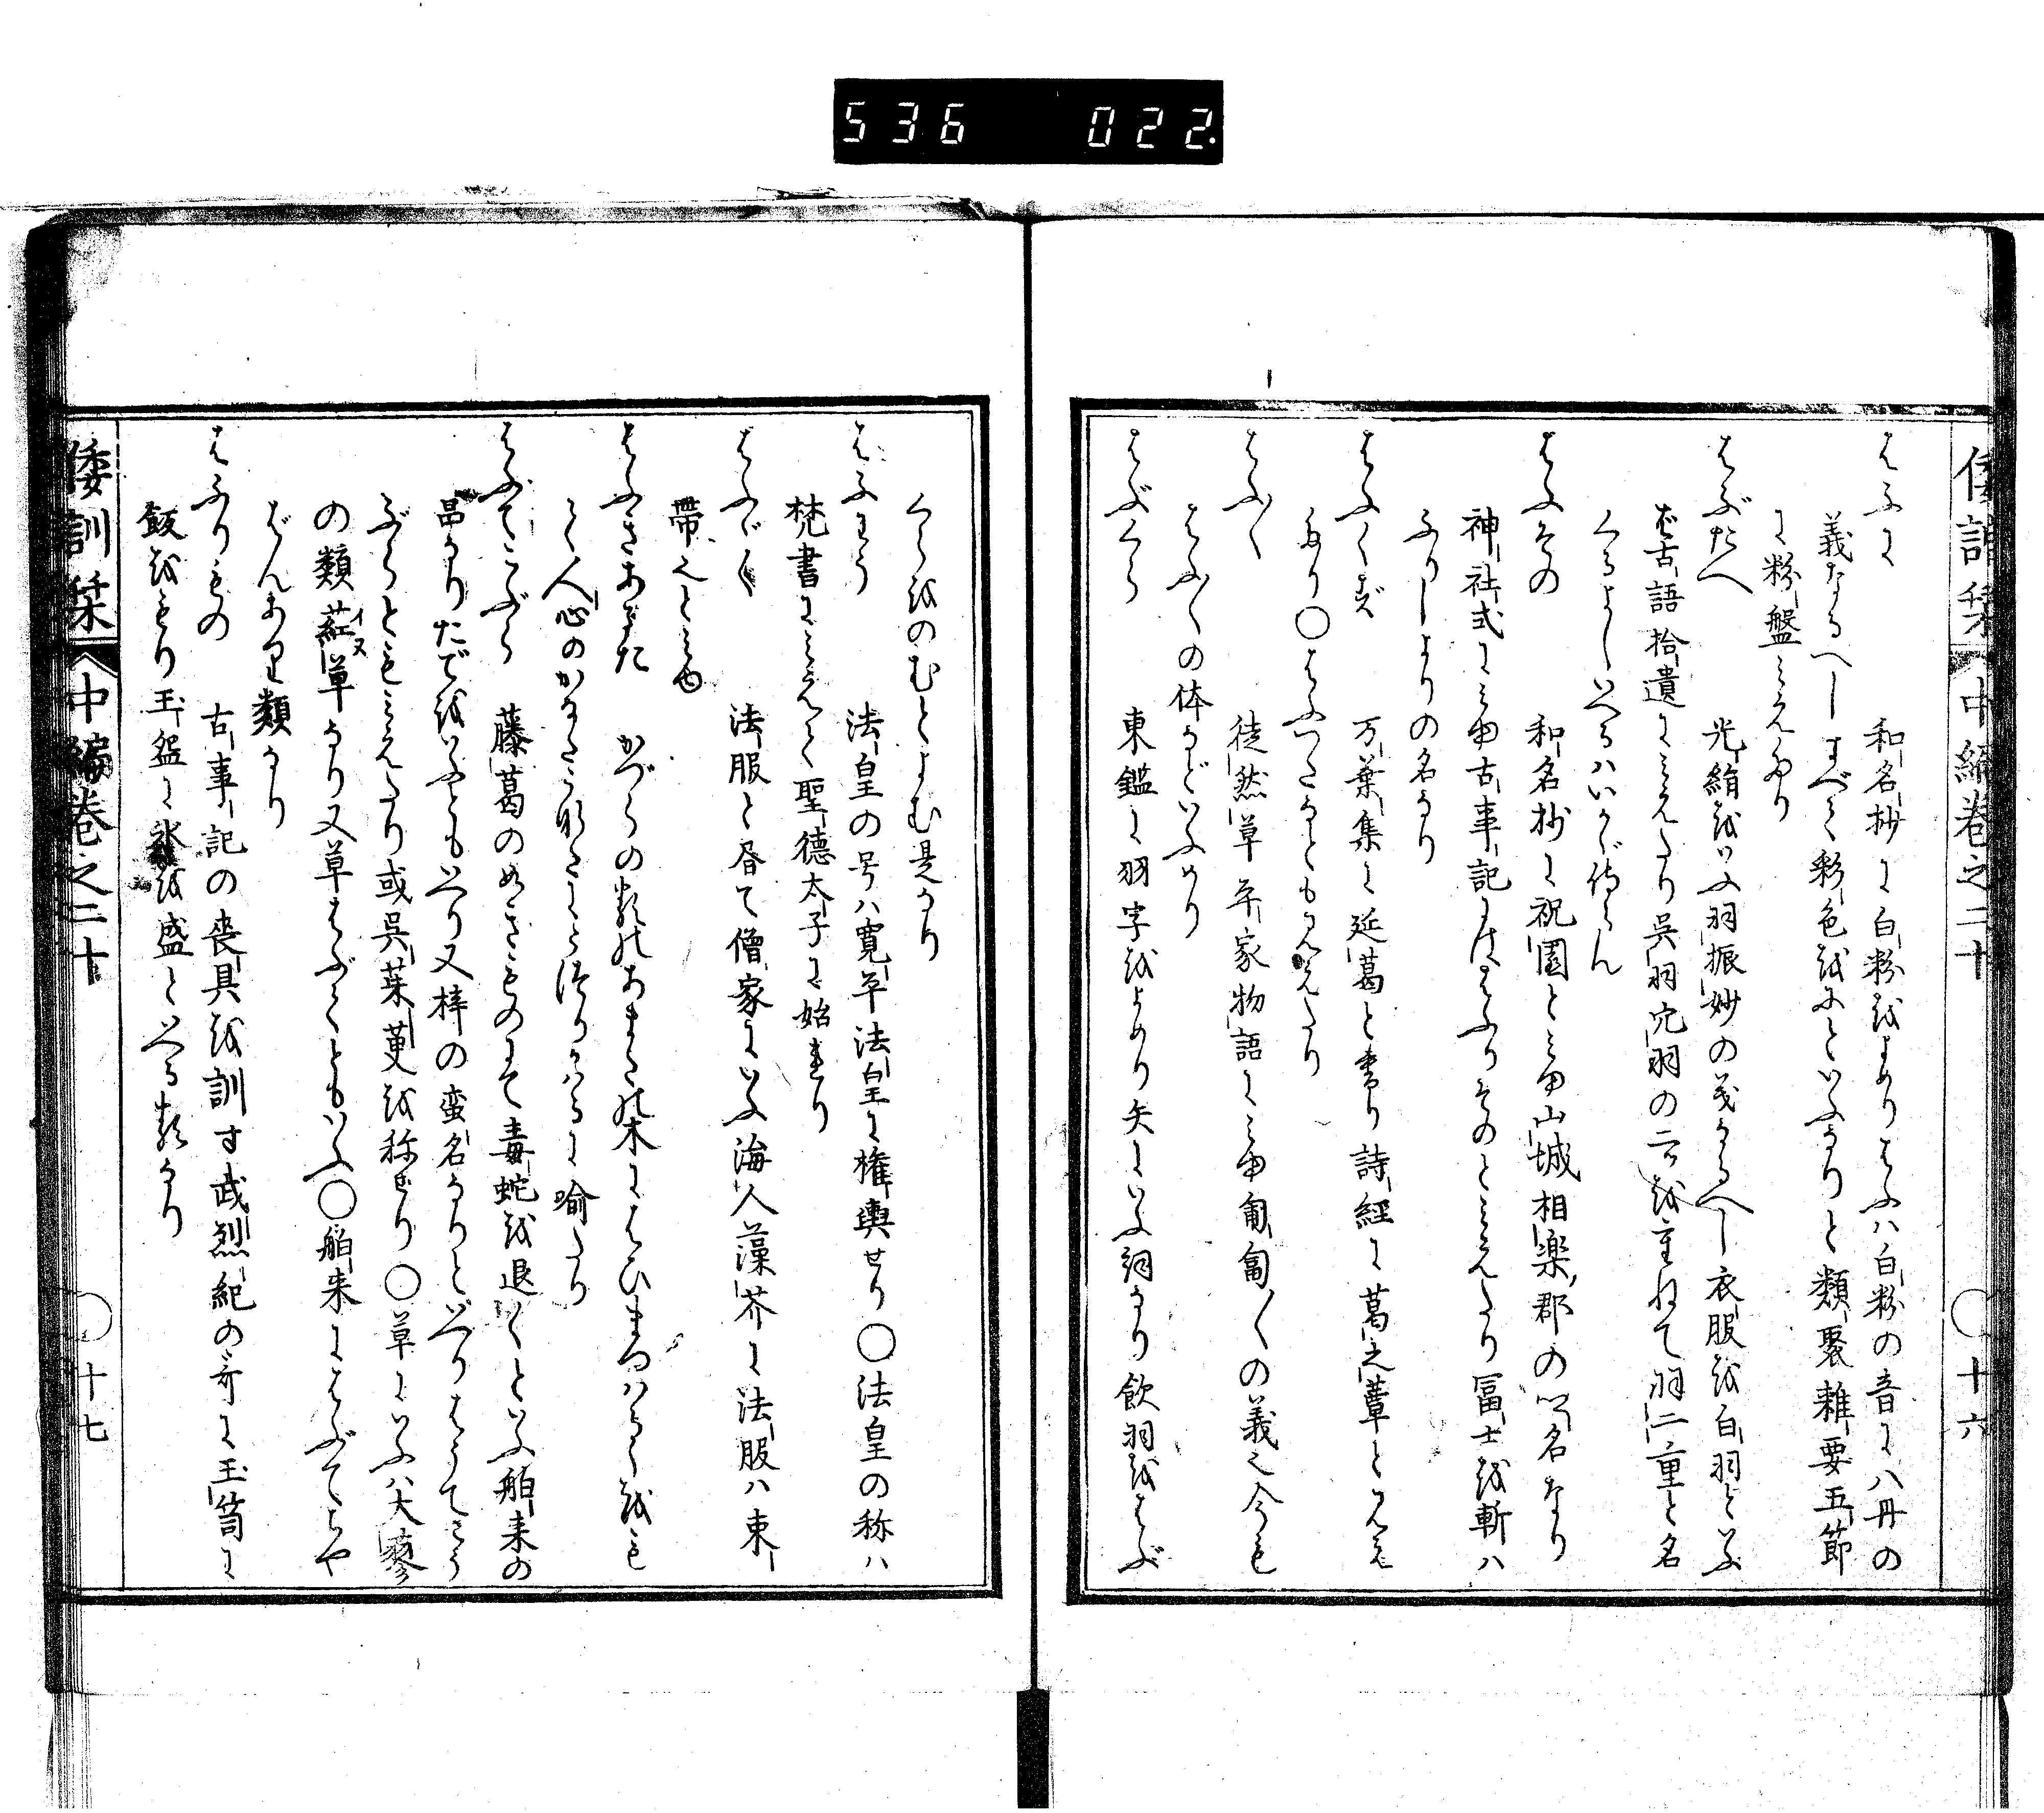 536 022.
倭訓栞 中編巻之二十 ○十六
はふに 和名抄に白粉をよめりはふハ白粉の音にハ丹の
義なるへしすべて彩色をにといふなりと類聚雑要五節
に粉盤と見えたり
はぶたへ 光絹をいふ羽振妙の義なるへし衣服を白羽といふ
古語拾遺にみえたり呉羽穴羽の二つを重ねて羽二重と名
くるよしいへるハいかゞ侍らん
はふその 和名抄に祝園とみゆ山城相楽郡の郷名なり
神社式にみゆ古事記にはふりそのとみえたり冨士を斬ハ
ふりしよりの名なり
はふくず 万葉集に延葛と書り詩経に葛之蕈と見え
たり○はふつたなとも見えたり
はふ〳〵 徒然草平家物語にみゆ匍匐〳〵の義也今も
はふ〳〵の体などいふめり
はぶくら 東鑑に羽字をよめり矢にいふ詞なり飲羽をはぶ
くらをのむとよむ是なり
はふわう 法皇の号ハ寛平法皇に権輿せり○法皇の称ハ
梵書にみえて聖徳太子に始れり
はふぶく 法服と昏て僧家にいふ海人藻芥に法服ハ束
帯也とみゆ
はふきあまた かづらの類のあまたの木にはひまつハるゝをも
て人心のかなたこなたにうつりかハるに喩たり
はぶてこぶら 藤葛のめきものにて毒蛇を退くといふ舶来の
品なりたでをいふともいへり又梓の蛮名なりといへりはうてこう
ぶらともみえたり或呉茱萸を称せり○草にいふハ大蓼
の類葒草なり又草はぶてともいふ○舶来にはぶてちや
ばんあり類なり
はふりもの 古事記の喪具を訓す武烈紀の哥に玉笥に
飯をもり玉盌に水を盛といへる類なり
倭訓栞 中編巻之二十 ○十七